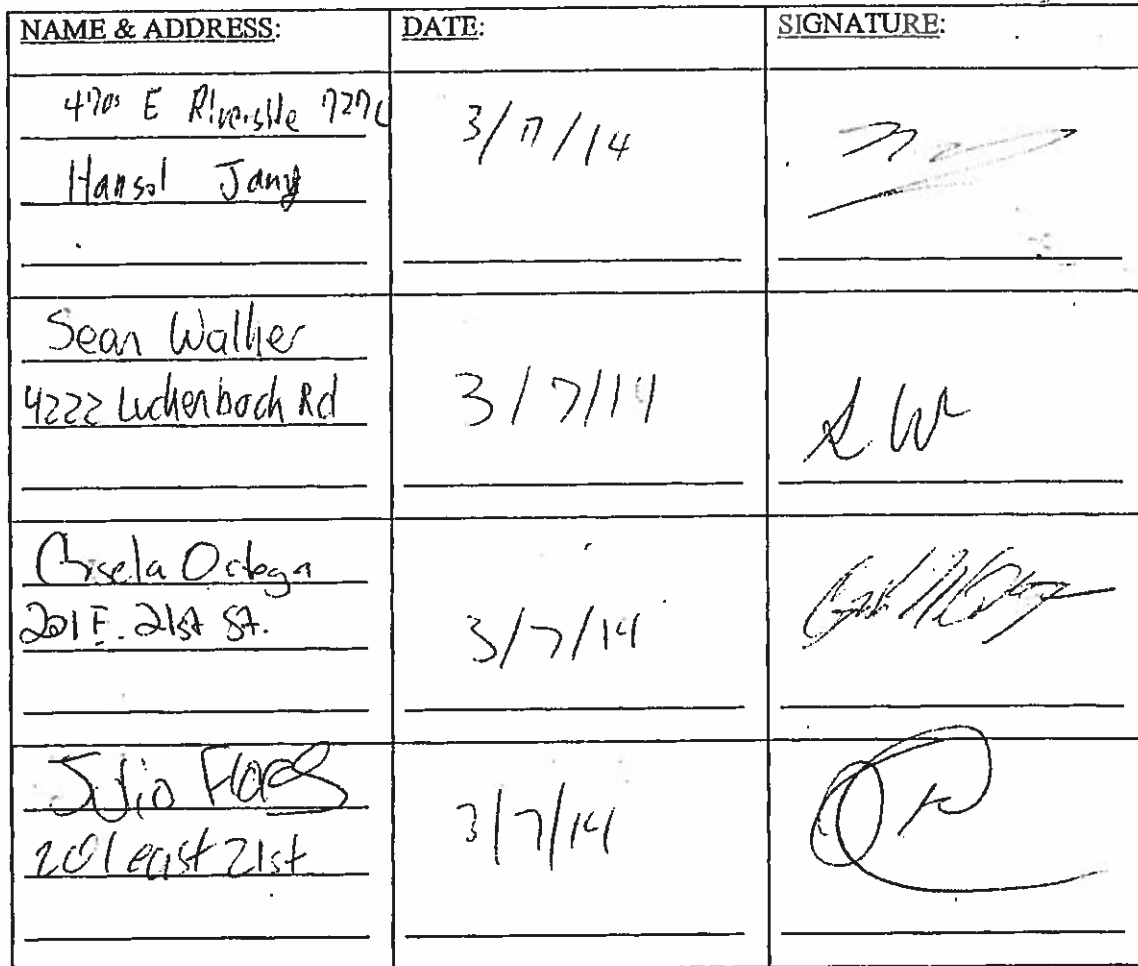 NAME & ADDRESS: DATE: SIGNATURE:
E Riverside
3/7/14
Hansol Jang
Sean Walker
4222 Luckenbach Rd
3/7/14
SW
Gisela Ortega
201 E. 21st St.
3/7/14
Julio Flores
201 east 21st
3/7/14